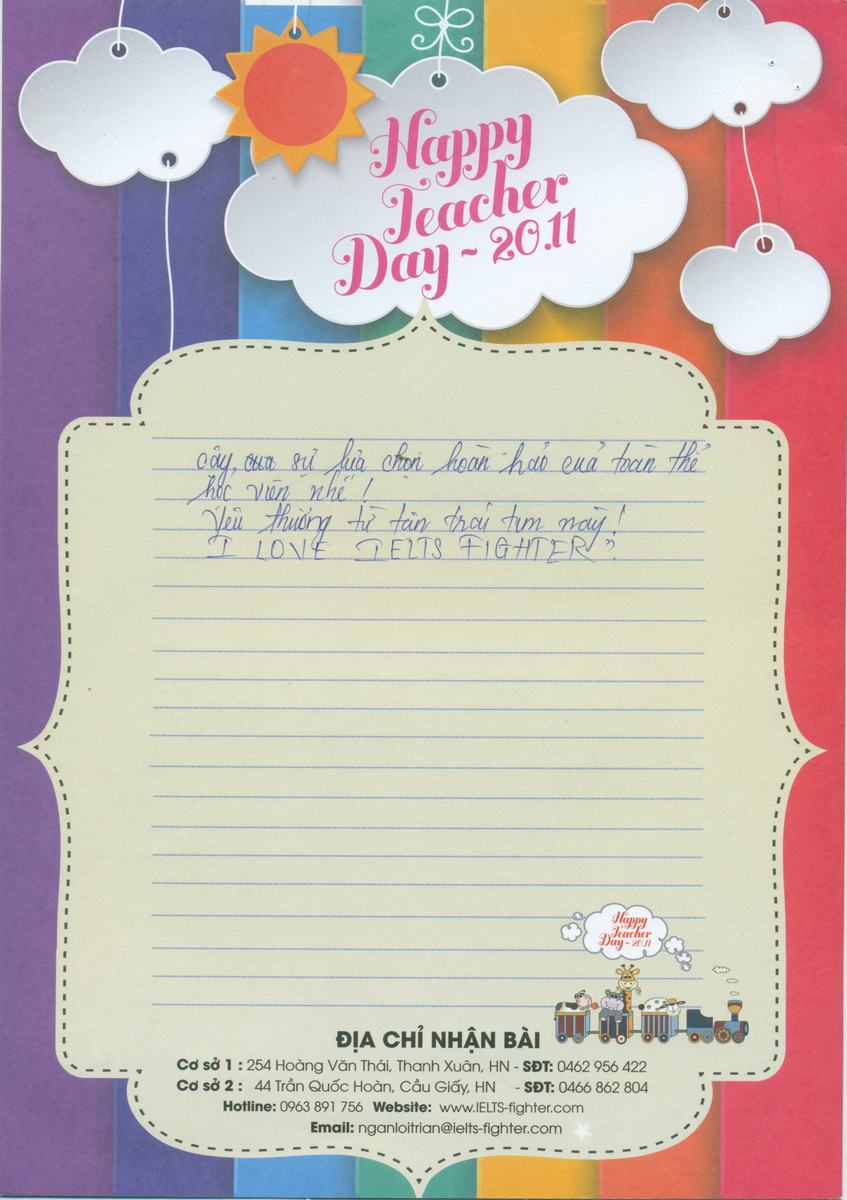 Happy
Teacher
Day ~ 20.11
cậy, sự lựa chọn hoàn hảo của toàn thể
học viên nhé!
Yêu thương từ tận trái tim này!
I LOVE IELTS FIGHTER?
Happy
Teacher
Day ~ 20.11
ĐỊA CHỈ NHẬN BÀI
Cơ sở 1 : 254 Hoàng Văn Thái, Thanh Xuân, HN - SĐT: 0462 956 422
Cơ sở 2 : 44 Trần Quốc Hoàn, Cầu Giấy, HN - SĐT: 0466 862 804
Hotline: 0963 891 756 Website: www.IELTS-fighter.com
Email: nganloitrian@ielts-fighter.com